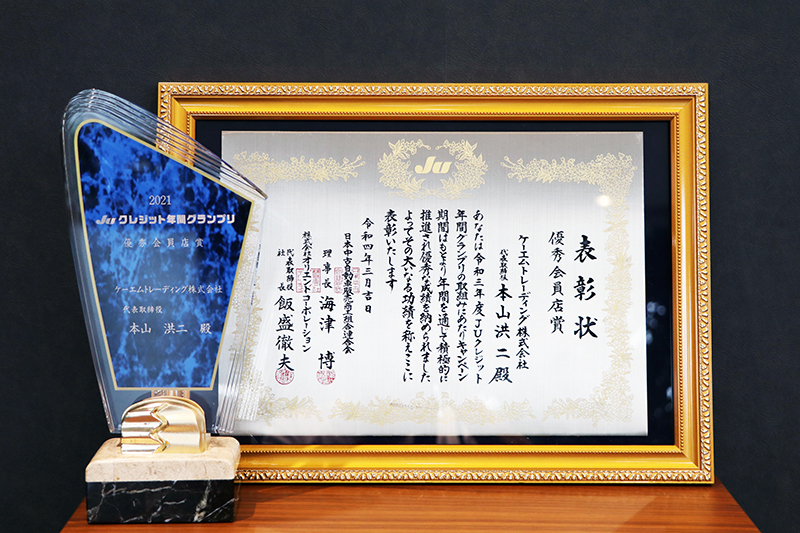 2021
Ju クレジット年間グランプリ
優秀会員店賞
ケーエムトレーディング株式会社
代表取締役
本山 洪二 殿
Ju
表彰状
優秀会員店賞
ケーエムトレーディング株式会社
代表取締役 本山洪二殿
あなたは令和三年度JUクレジット
年間グランプリの取組みにあたりキャンペーン
期間はもとより年間を通して積極的に
推進され優秀な成績を納められました
よってその大いなる功績を称えここに
表彰いたします
令和四年三月吉日
日本中古自動車販売商工組合連合会
理事長 海津 博
株式会社オリエントコーポレーション
代表取締役社長 飯盛徹夫